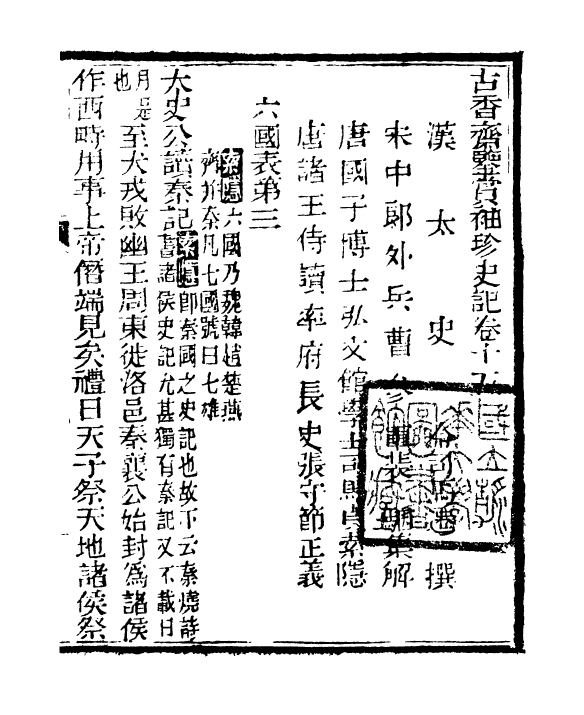 古香齋鑒賞袖珍史記卷十五
漢太史令司馬遷撰
宋中郎外兵曹參軍裴駰集解
唐國子博士弘文館學士司馬貞索隱
唐諸王侍讀率府長史張守節正義
六國表第三
索隱六國乃魏韓趙楚燕
齊并秦凡七國號曰七雄
太史公讀秦記索隱即秦國之史記也故下云秦燒詩
書諸侯史記尤甚獨有秦記又不載日
月是
也
至犬戎敗幽王周東徙洛邑秦襄公始封為諸侯
作西畤用事上帝僭端見矣禮曰天子祭天地諸侯祭